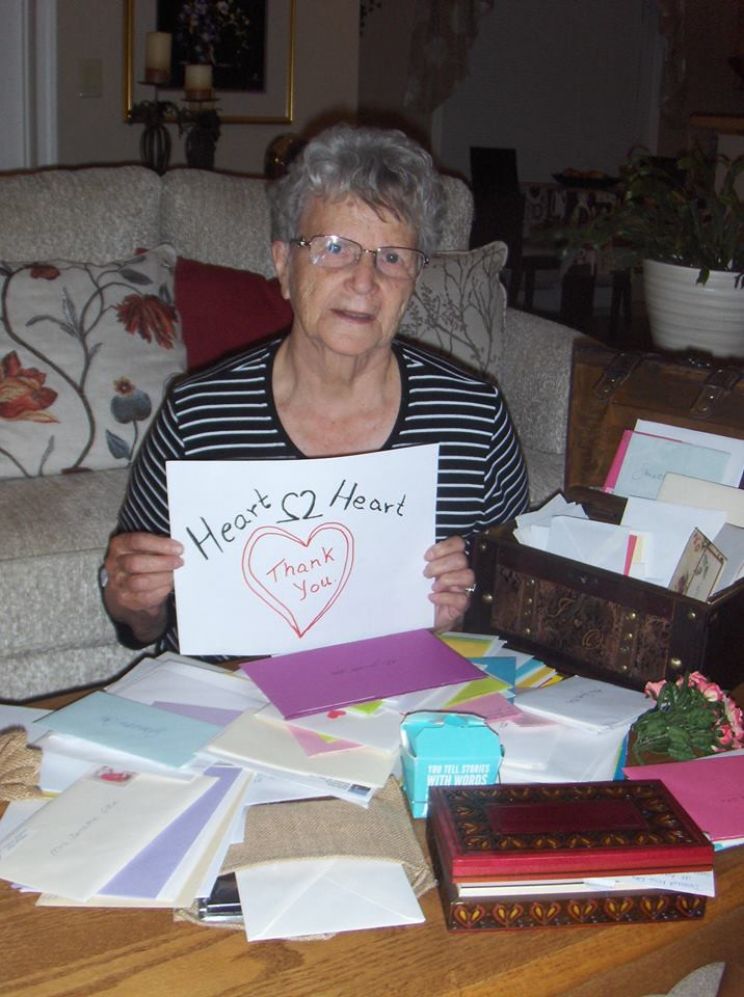 Heart S2 Heart
Thank
You
YOU TELL STORIES
WITH WORDS
Mrs